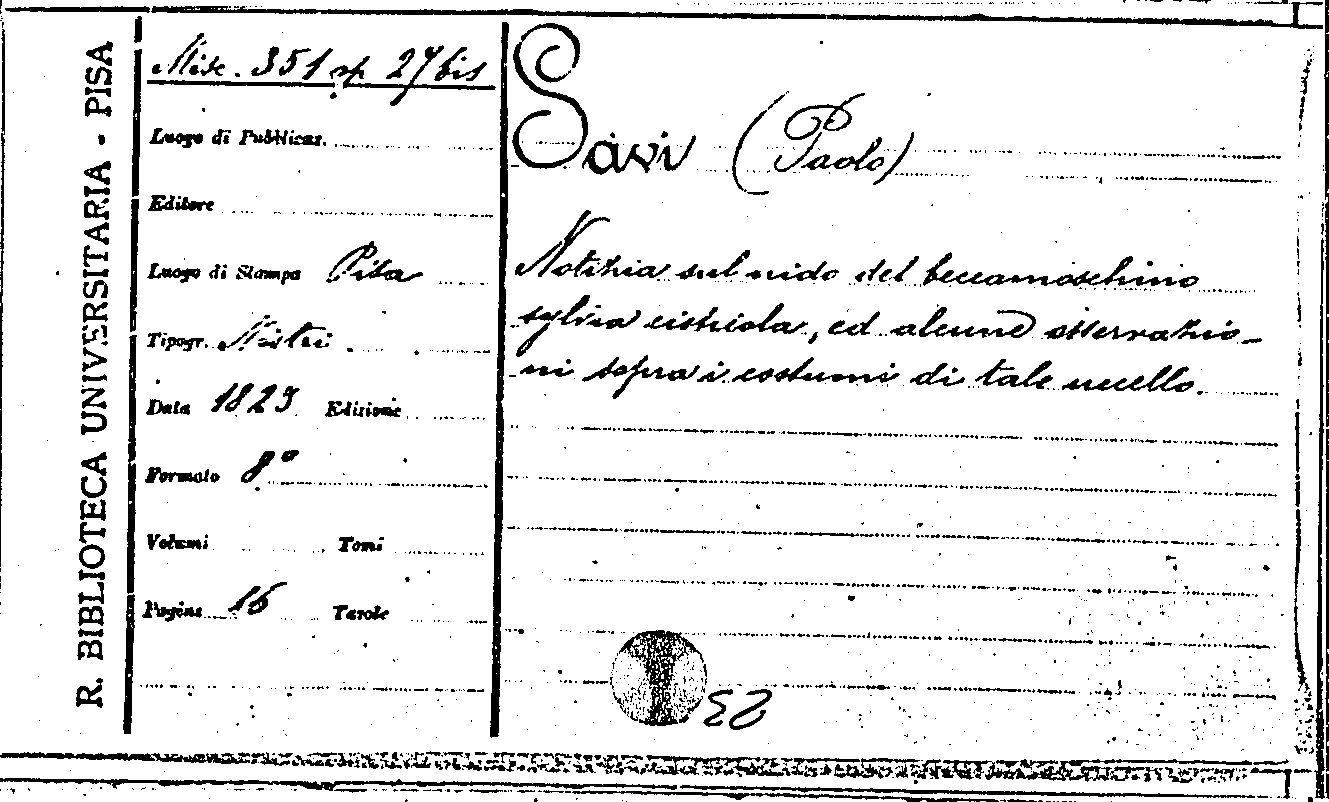 R. BIBLIOTECA UNIVERSITARIA - PISA
Misc. 351 op 27 bis
Luogo di Pubblicaz.
Editore
Luogo di Stampa Pisa
Tipogr. Nistri
Data 1823 Edizione
Formato 8°
Volumi Tomi
Pagine 16 Tavole
Savi (Paolo)
Notizia sul nido del beccamoschino
sylvia cisticola, ed alcune osservazio-
ni sopra i costumi di tale uccello.